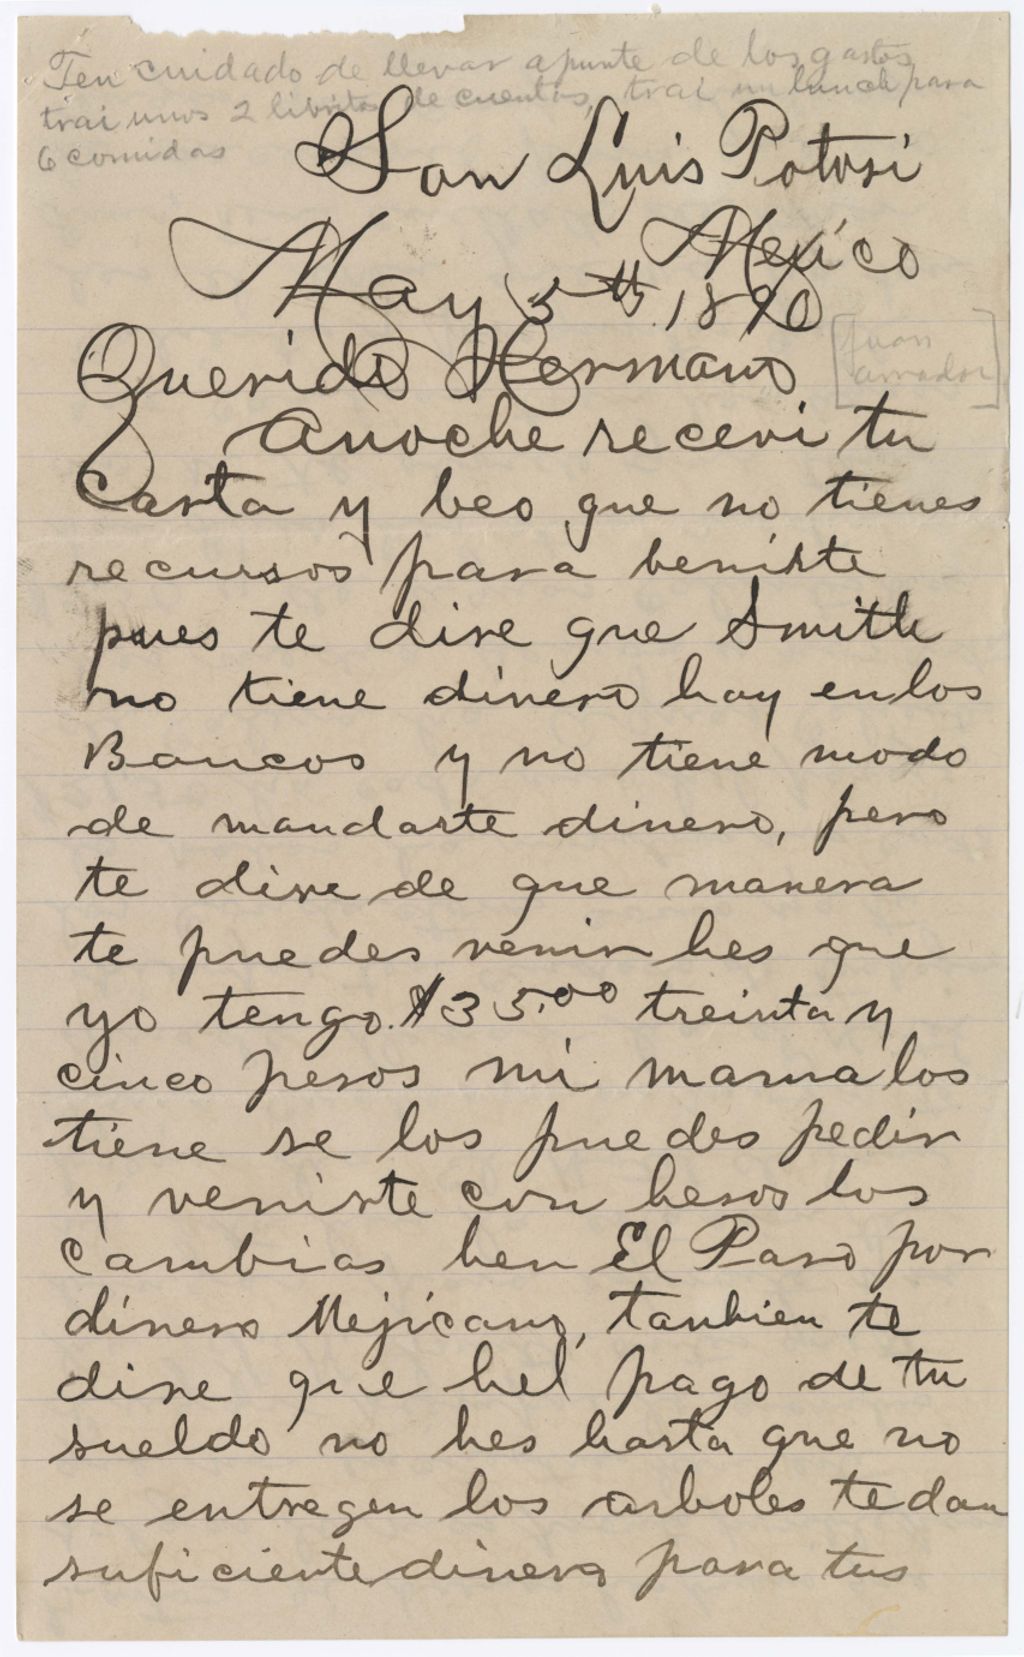 Ten cuidado de llevar apunte de los gastos
trai unos 2 libritos de cuentas, trai un lunch para
6 comidas
San Luis Potosi
Mejico
May 5th 1890
Querido Hermano
[Juan
amador]
Anoche recevi tu
Carta y beo que no tienes
recursos para benirte
pues te dire que Smith
no tiene dinero hay en los
Bancos y no tiene modo
de mandarte dinero, pero
te dire de que manera
te puedes venir hes que
yo tengo $35.00 treinta y
cinco pesos mi mama los
tiene se los puedes pedir
y venirte con hesos los
cambias hen El Paso por
dinero Mejicano, tanbien te
dire que hel pago de tu
sueldo no hes hasta que no
se entregen los arboles te dan
suficiente dinero para tus